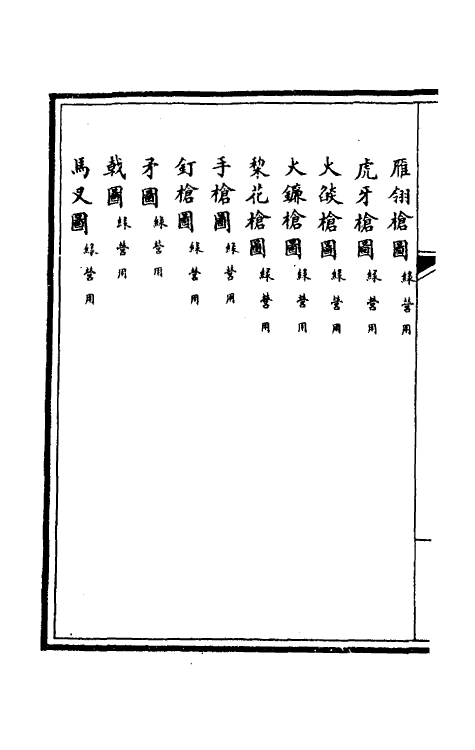 雁翎槍圖綠營用
虎牙槍圖綠營用
火燄槍圖綠營用
火鐮槍圖綠營用
棃花槍圖綠營用
手槍圖綠營用
釘槍圖綠營用
矛圖綠營用
戟圖綠營用
馬叉圖綠營用